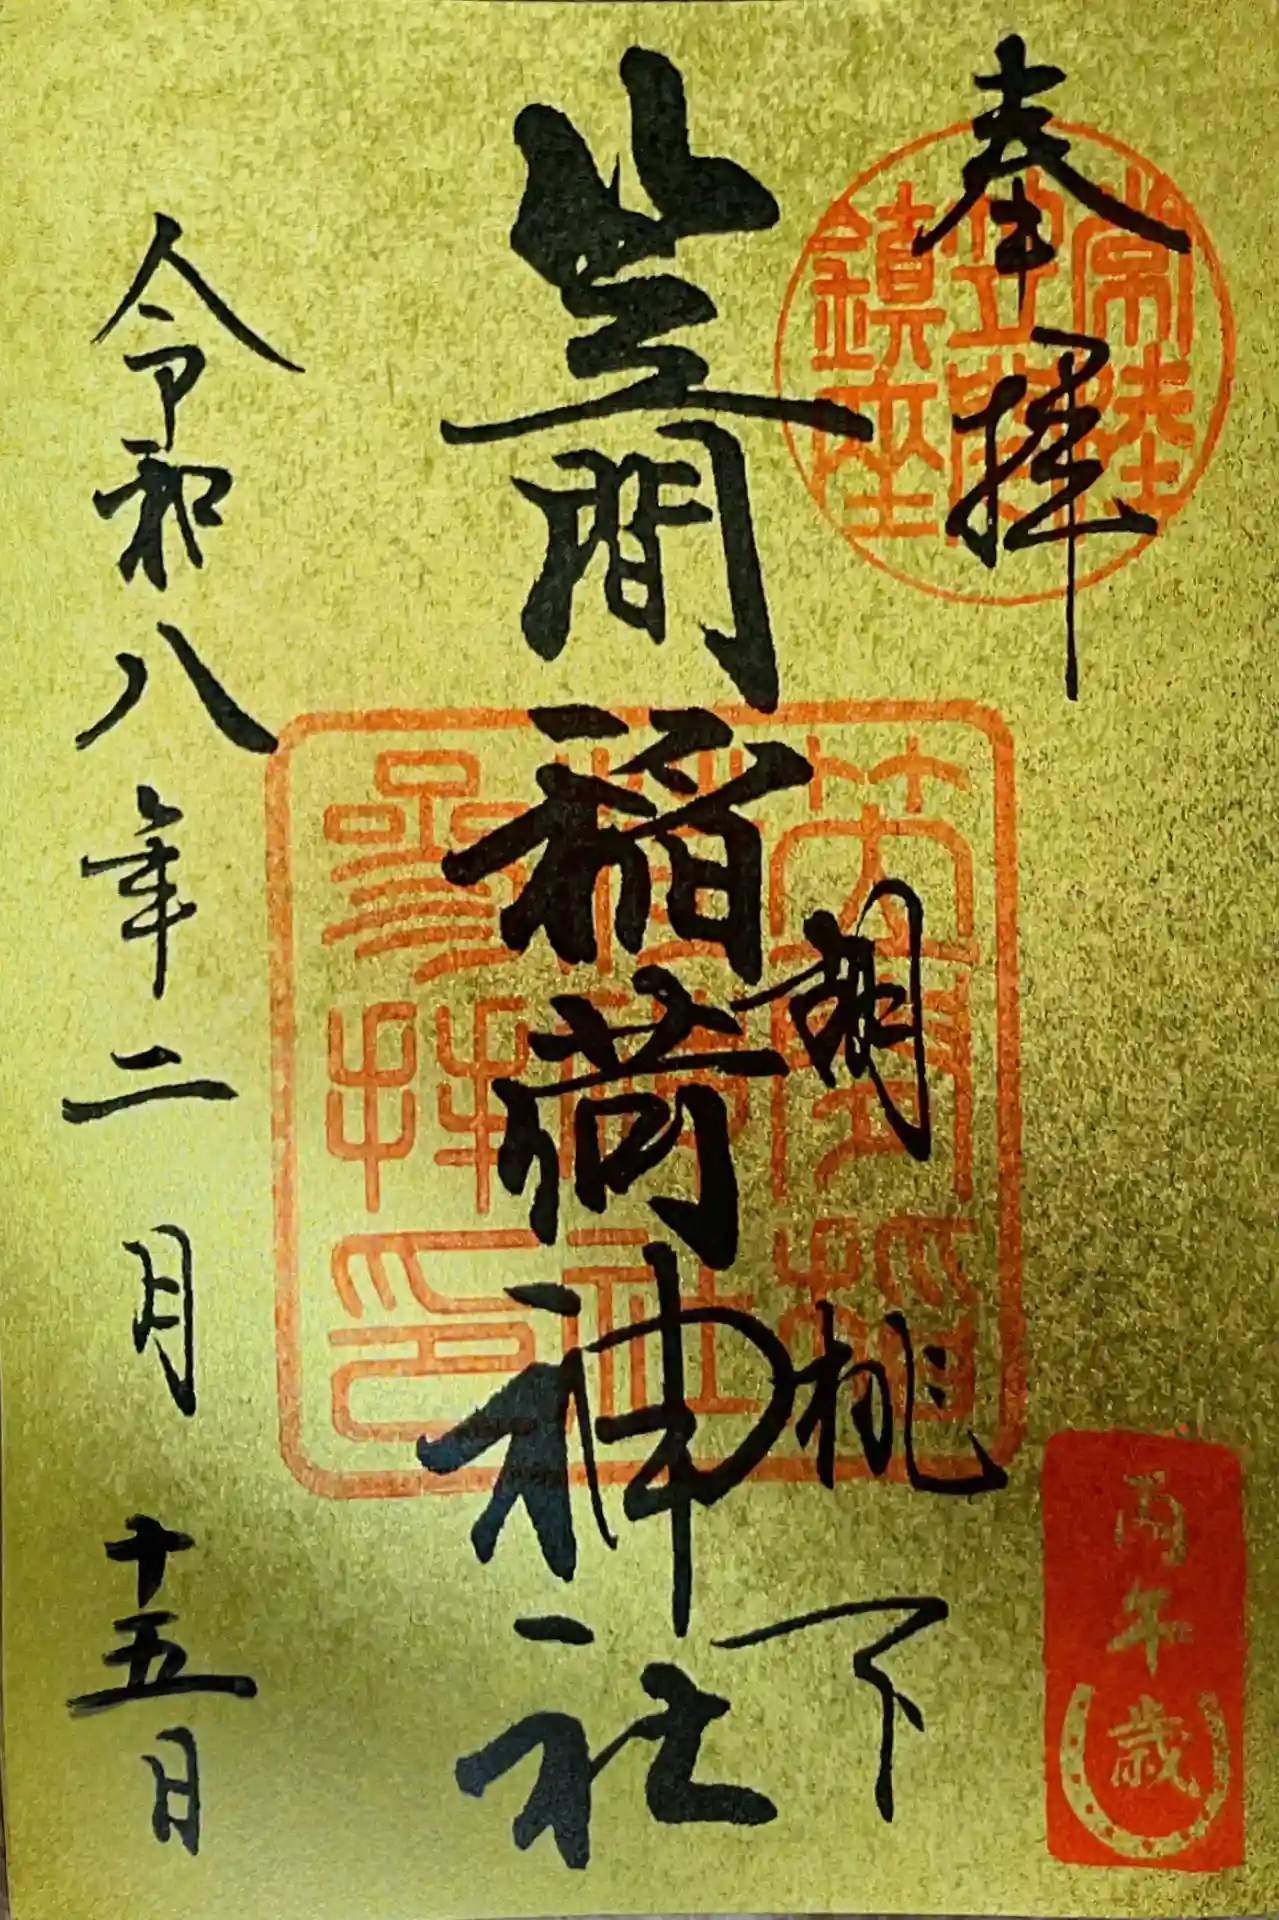 奉拝
常陸
笠間
鎮座
胡桃下
笠間稲荷神社
笠間稲
荷神社
参拝印
令和八年二月十五日
丙午歳